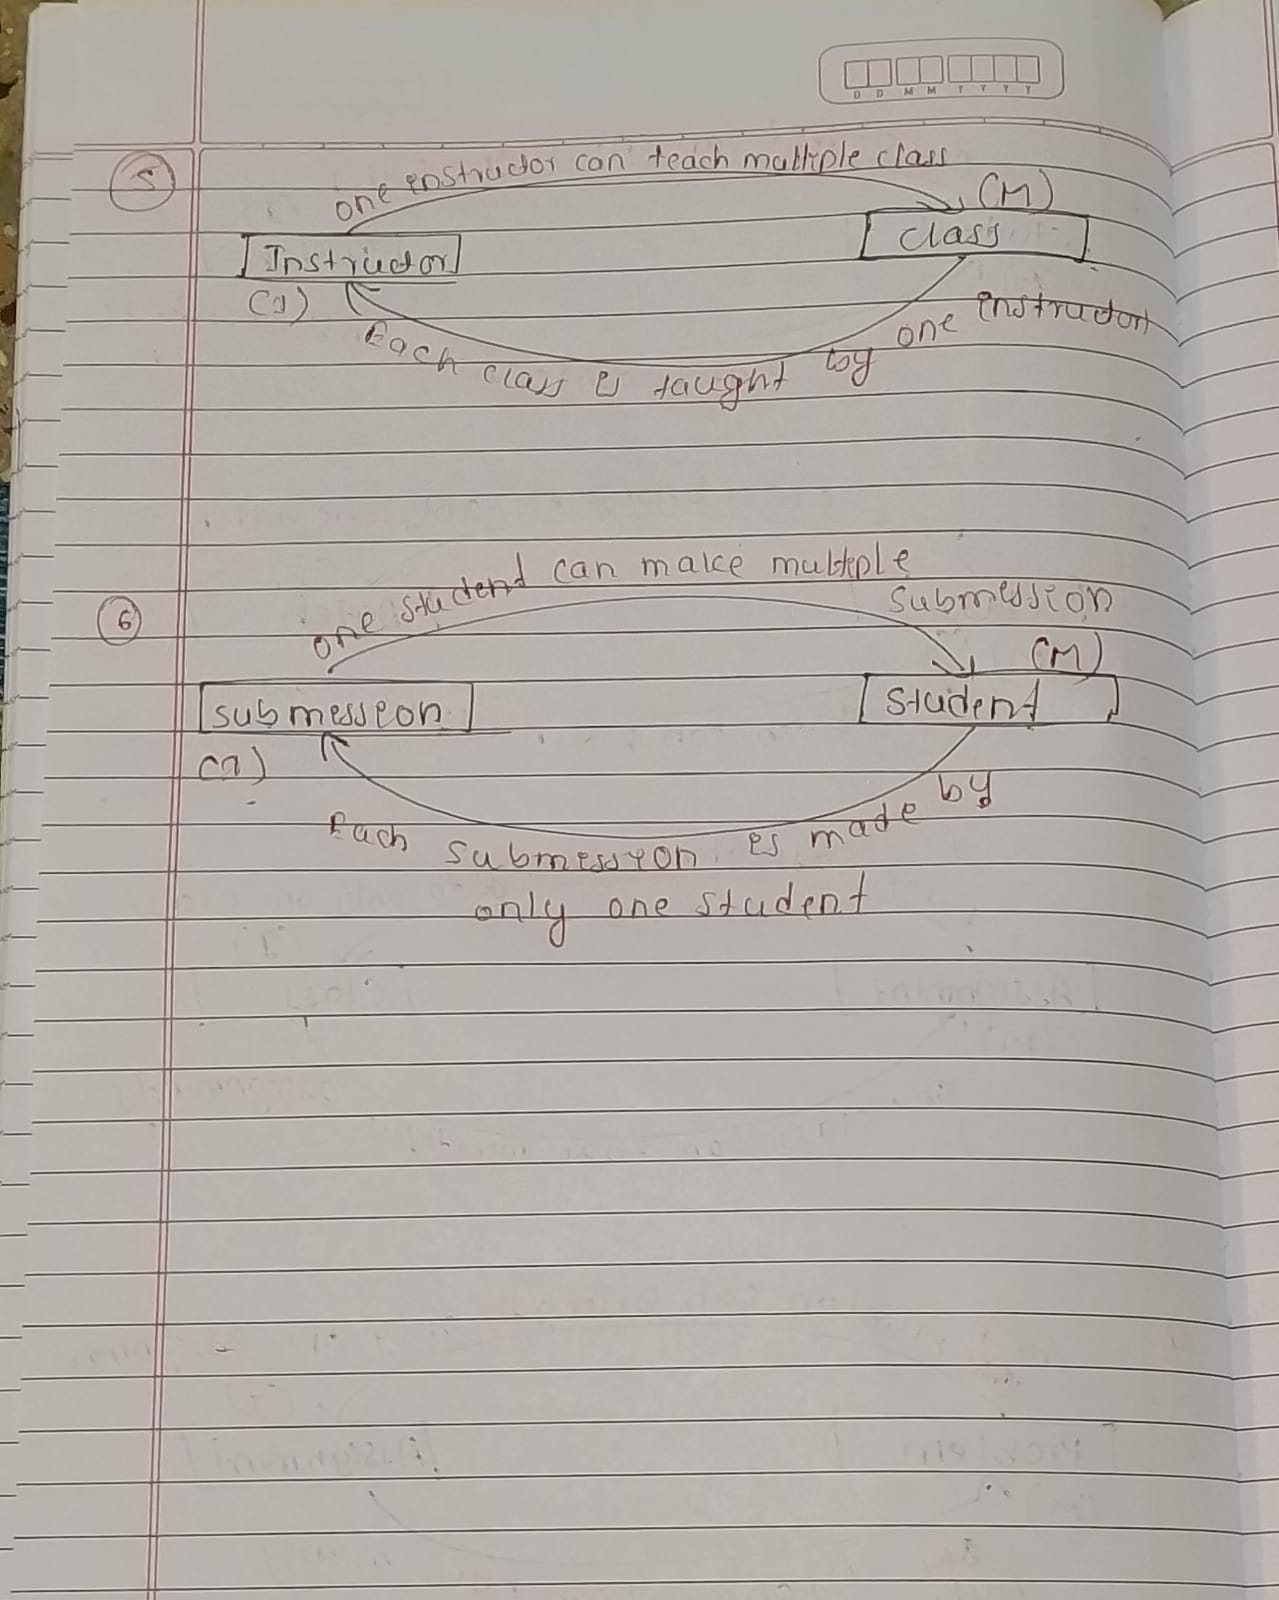 D D M M Y Y Y Y
5
one enstructor can teach multiple class
(M)
Instructor
class
(1)
Each class es taught by one enstructor
6
one student can make multeple
submesseon
(M)
submesseon
student
(1)
Each submesseon es made by
only one student